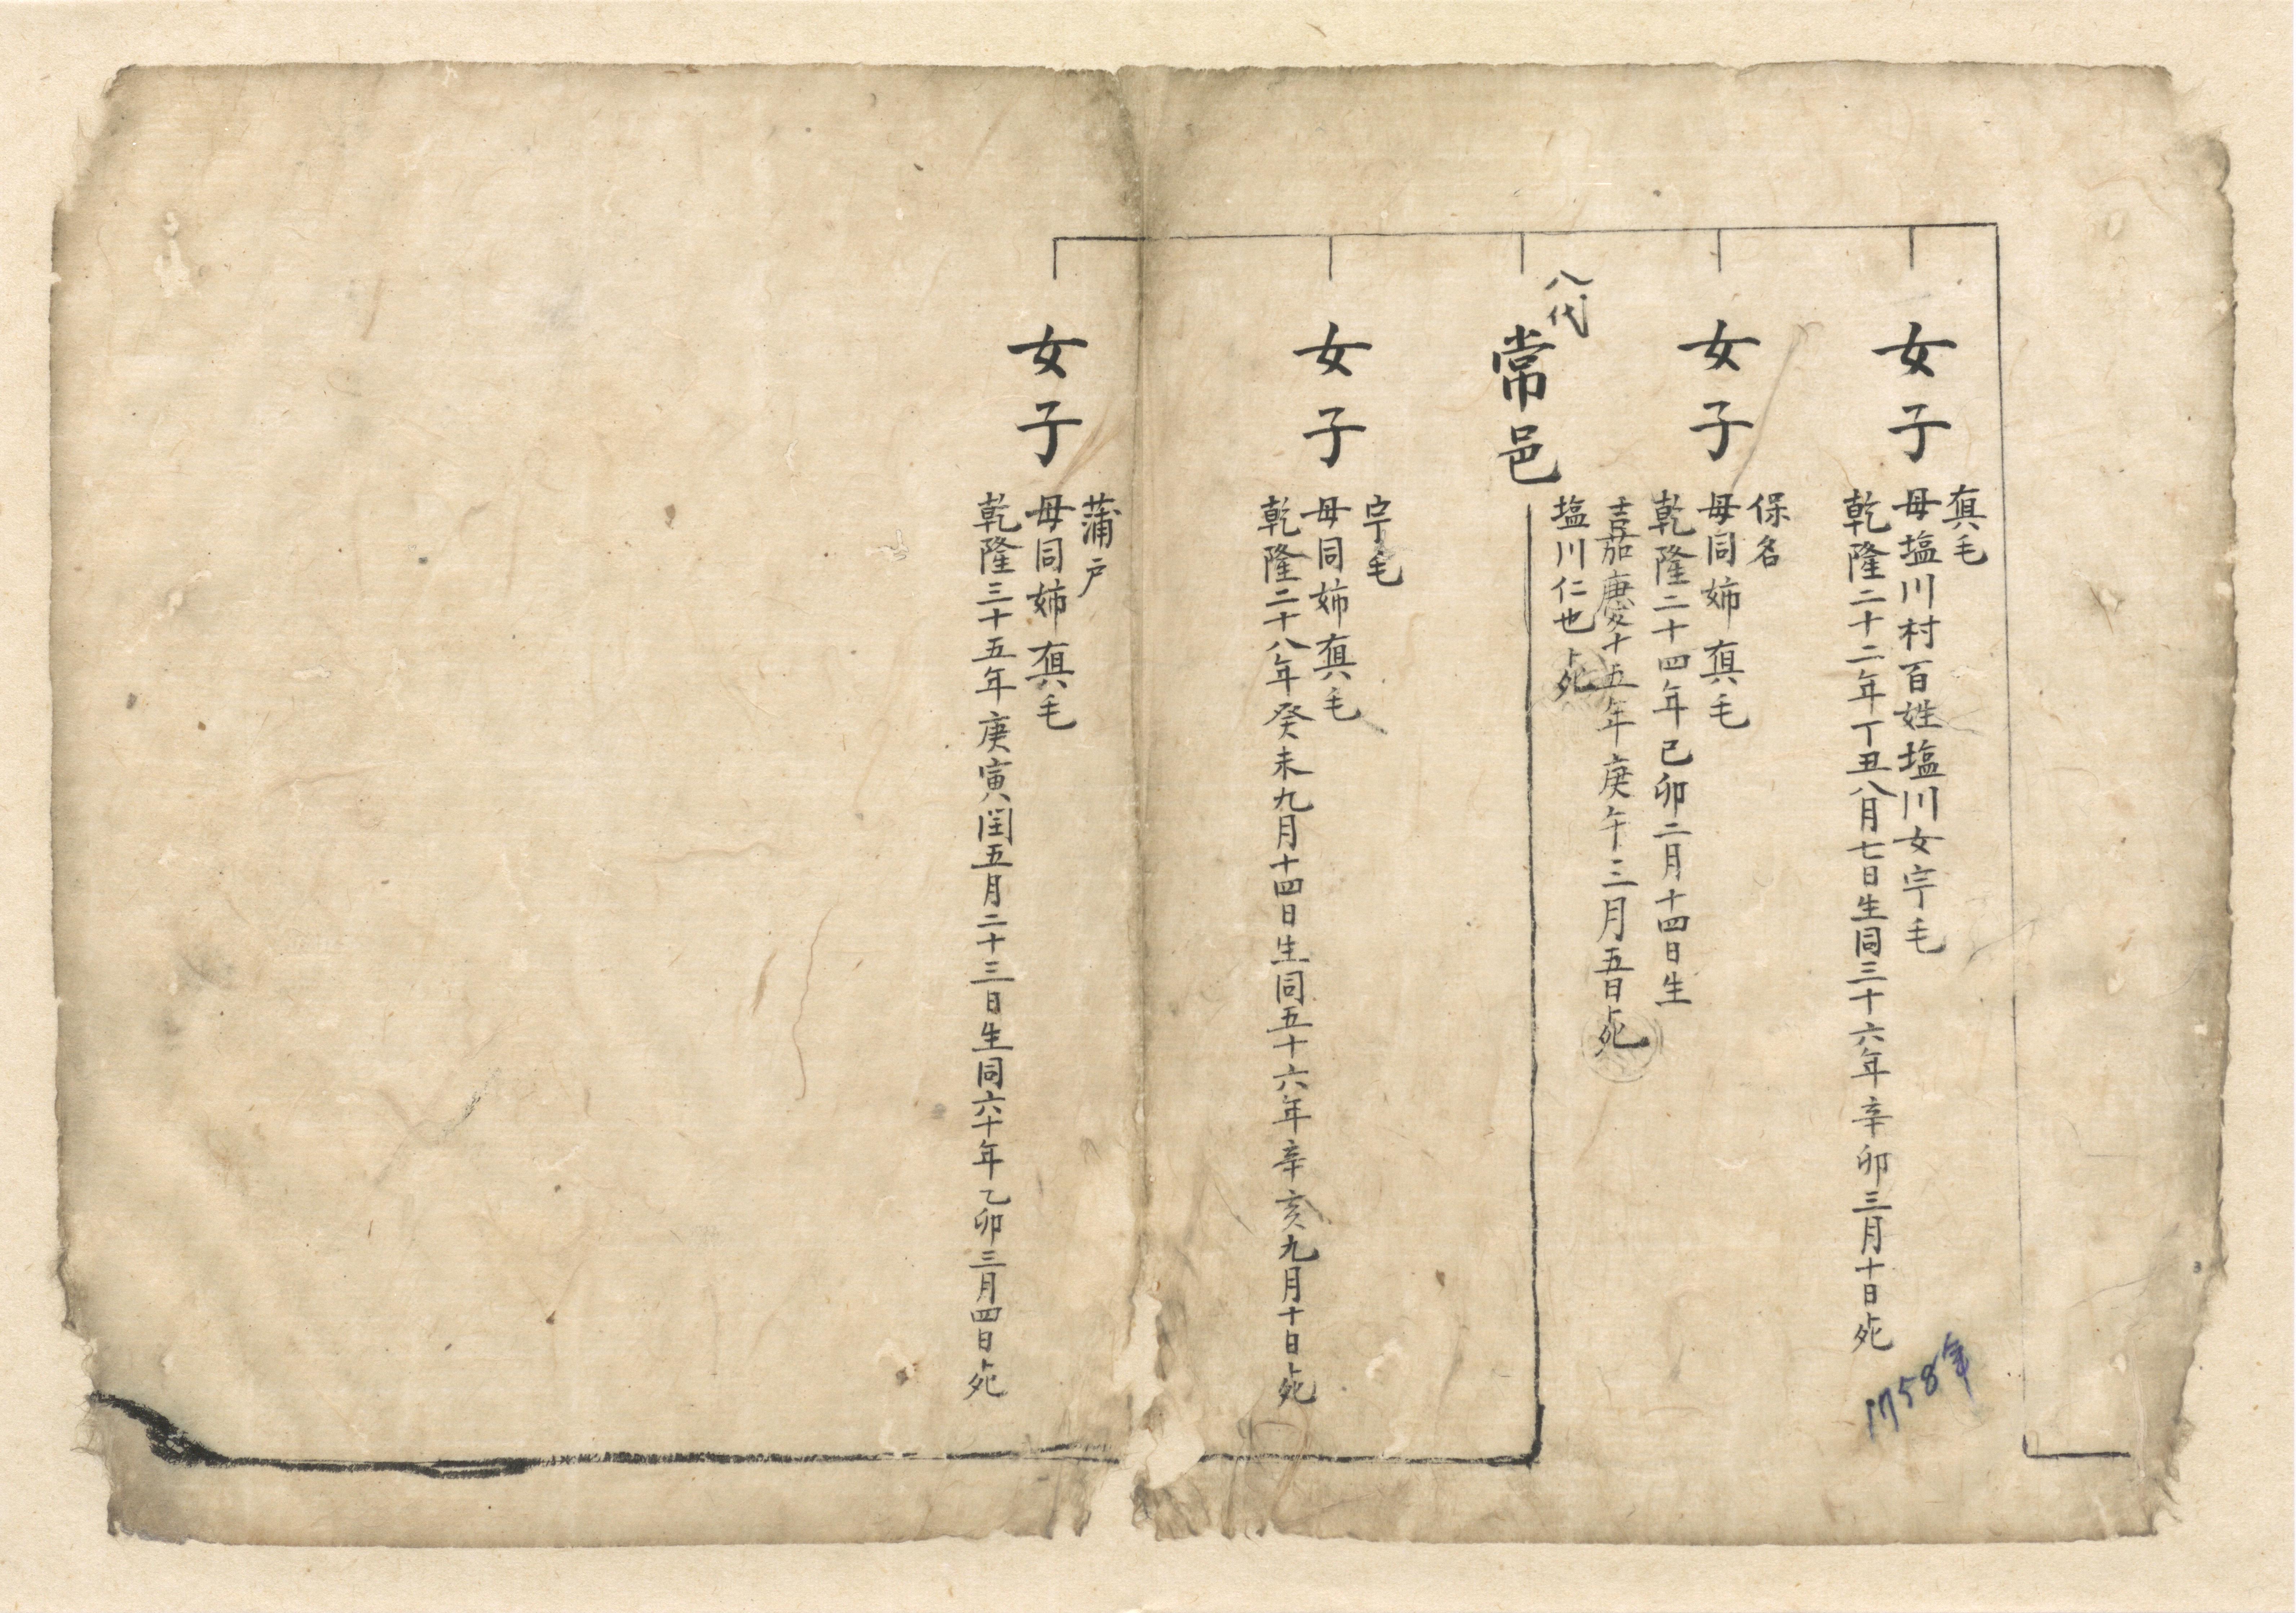 女子
真毛
母塩川村百姓塩川女宇毛
乾隆二十二年丁丑八月七日生同三十六年辛卯三月十日死
1758年
女子
保名
母同姉真毛
乾隆二十四年己卯二月十四日生
嘉慶十五年庚午三月五日死
塩川仁也死
八代
常邑
女子
宇毛
母同姉真毛
乾隆二十八年癸未九月十四日生同五十六年辛亥九月十日死
女子
蒲戸
母同姉真毛
乾隆三十五年庚寅閏五月二十三日生同六十年乙卯三月四日死